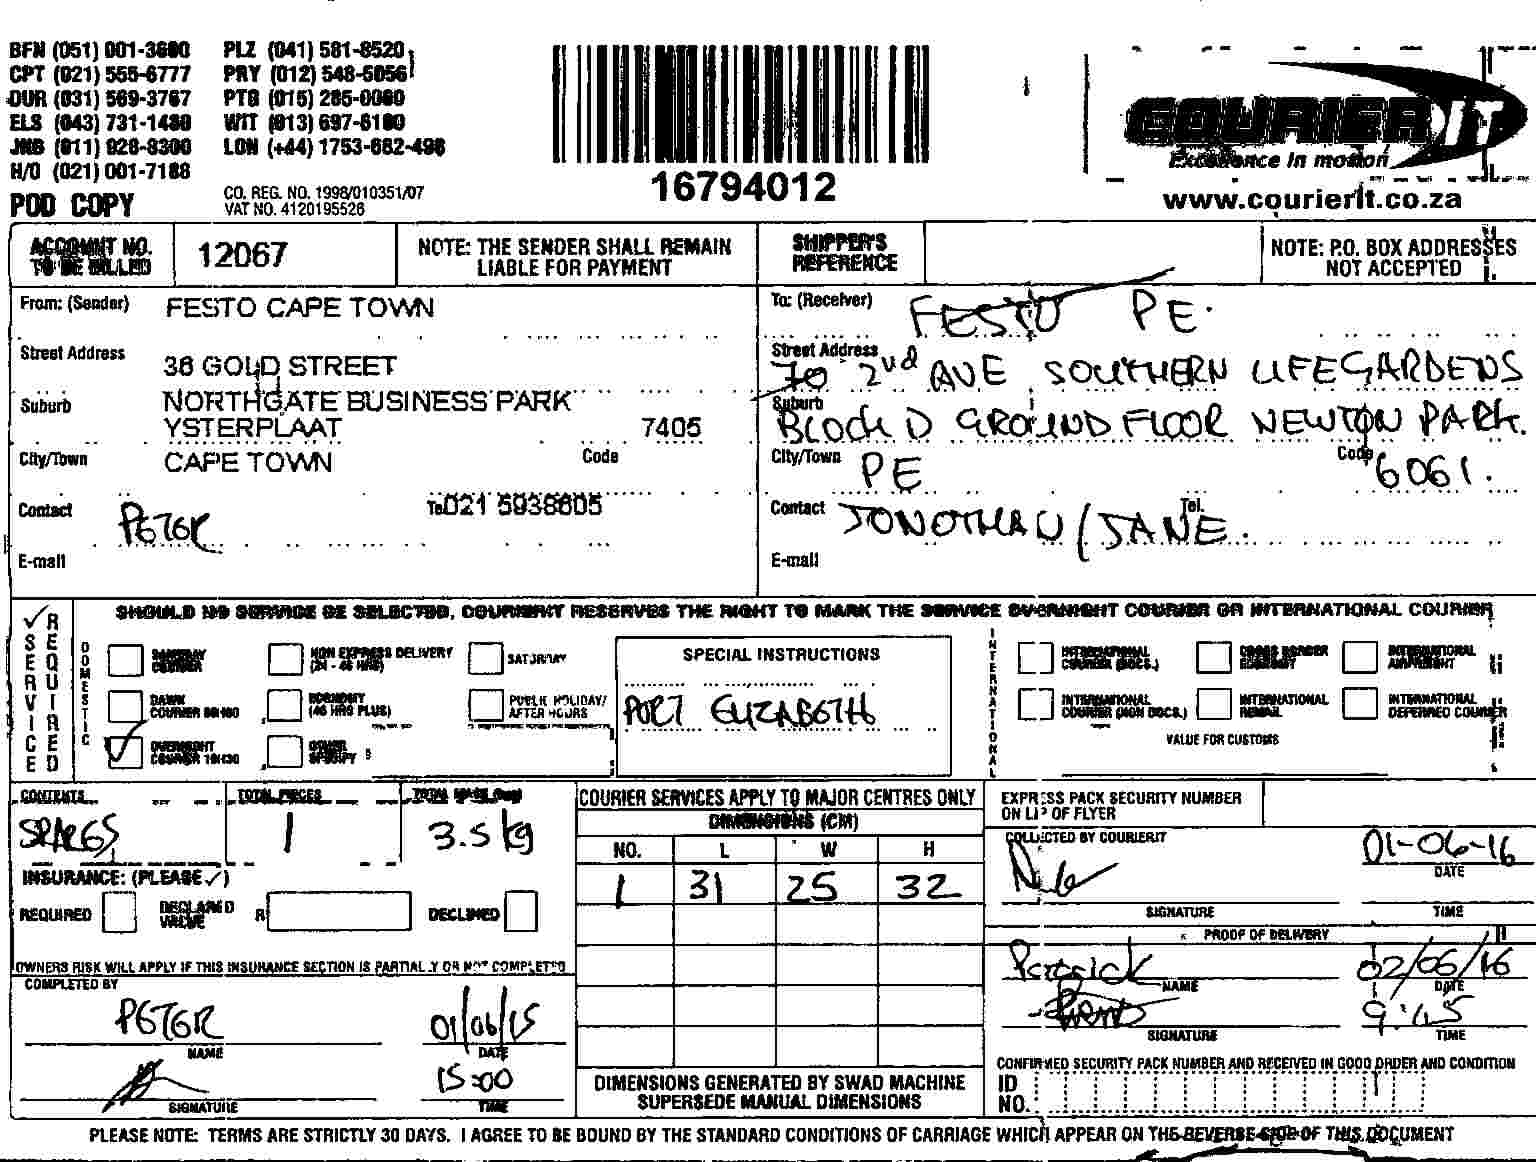 BFN (051) 001-3600 PLZ (041) 581-8520
CPT (021) 555-6777 PRY (012) 548-5056
DUR (031) 569-3767 PTG (015) 285-0060
ELS (043) 731-1480 WIT (013) 697-6180
JNB (011) 928-8300 LON (+44) 1753-682-498
H/O (021) 001-7188
POD COPY
CO. REG. NO. 1998/010351/07
VAT NO. 4120195526
16794012
COURIER IT
Excellence in motion
www.courierit.co.za
ACCOUNT NO. TO BE BILLED 12067
NOTE: THE SENDER SHALL REMAIN LIABLE FOR PAYMENT
SHIPPER'S REFERENCE
NOTE: P.O. BOX ADDRESSES NOT ACCEPTED
From: (Sender) FESTO CAPE TOWN
Street Address 36 GOLD STREET
Suburb NORTHGATE BUSINESS PARK
YSTERPLAAT 7405
City/Town CAPE TOWN Code
Contact PETER Tel 021 5938605
E-mail
To: (Receiver) FESTO PE.
Street Address 70 2nd AVE SOUTHERN LIFEGARDENS
Suburb BLOCK D GROUND FLOOR NEWTON PARK.
City/Town PE Code 6061.
Contact JONOTHAN/JANE. Tel.
E-mail
SERVICE REQUIRED
DOMESTIC
SHOULD NO SERVICE BE SELECTED, COURIERIT RESERVES THE RIGHT TO MARK THE SERVICE OVERNIGHT COURIER OR INTERNATIONAL COURIER
SAMEDAY COURIER
NON EXPRESS DELIVERY (24 - 48 HRS)
SATURDAY
DAWN COURIER
ECONOMY (48 HRS PLUS)
PUBLIC HOLIDAY/ AFTER HOURS
OVERNIGHT COURIER
OTHER SPECIFY
SPECIAL INSTRUCTIONS
PORT ELIZABETH
INTERNATIONAL
INTERNATIONAL COURIER (DOCS.)
CROSS BORDER ECONOMY
INTERNATIONAL AIRFREIGHT
INTERNATIONAL COURIER (NON DOCS.)
INTERNATIONAL REMAIL
INTERNATIONAL DEFERRED COURIER
VALUE FOR CUSTOMS
CONTENTS TOTAL PIECES TOTAL MASS (kg)
SPARES 1 3.5 kg
INSURANCE: (PLEASE ✓)
REQUIRED DECLARED VALUE R DECLINED
OWNERS RISK WILL APPLY IF THIS INSURANCE SECTION IS PARTIALLY OR NOT COMPLETED
COMPLETED BY
PETER 01/06/15
NAME DATE
15:00
SIGNATURE TIME
COURIER SERVICES APPLY TO MAJOR CENTRES ONLY
DIMENSIONS (CM)
NO. L W H
1 31 25 32
DIMENSIONS GENERATED BY SWAD MACHINE
SUPERSEDE MANUAL DIMENSIONS
EXPRESS PACK SECURITY NUMBER
ON LIP OF FLYER
COLLECTED BY COURIERIT
01-06-16
DATE
SIGNATURE TIME
PROOF OF DELIVERY
Patrick 02/06/16
NAME DATE
SIGNATURE TIME
CONFIRMED SECURITY PACK NUMBER AND RECEIVED IN GOOD ORDER AND CONDITION
ID NO.
PLEASE NOTE: TERMS ARE STRICTLY 30 DAYS. I AGREE TO BE BOUND BY THE STANDARD CONDITIONS OF CARRIAGE WHICH APPEAR ON THE REVERSE SIDE OF THIS DOCUMENT